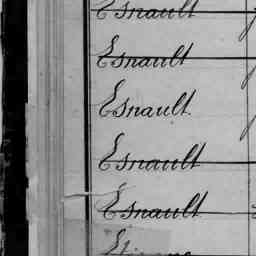 Esnault
Esnault
Esnault
Esnault
Esnault
Etienne